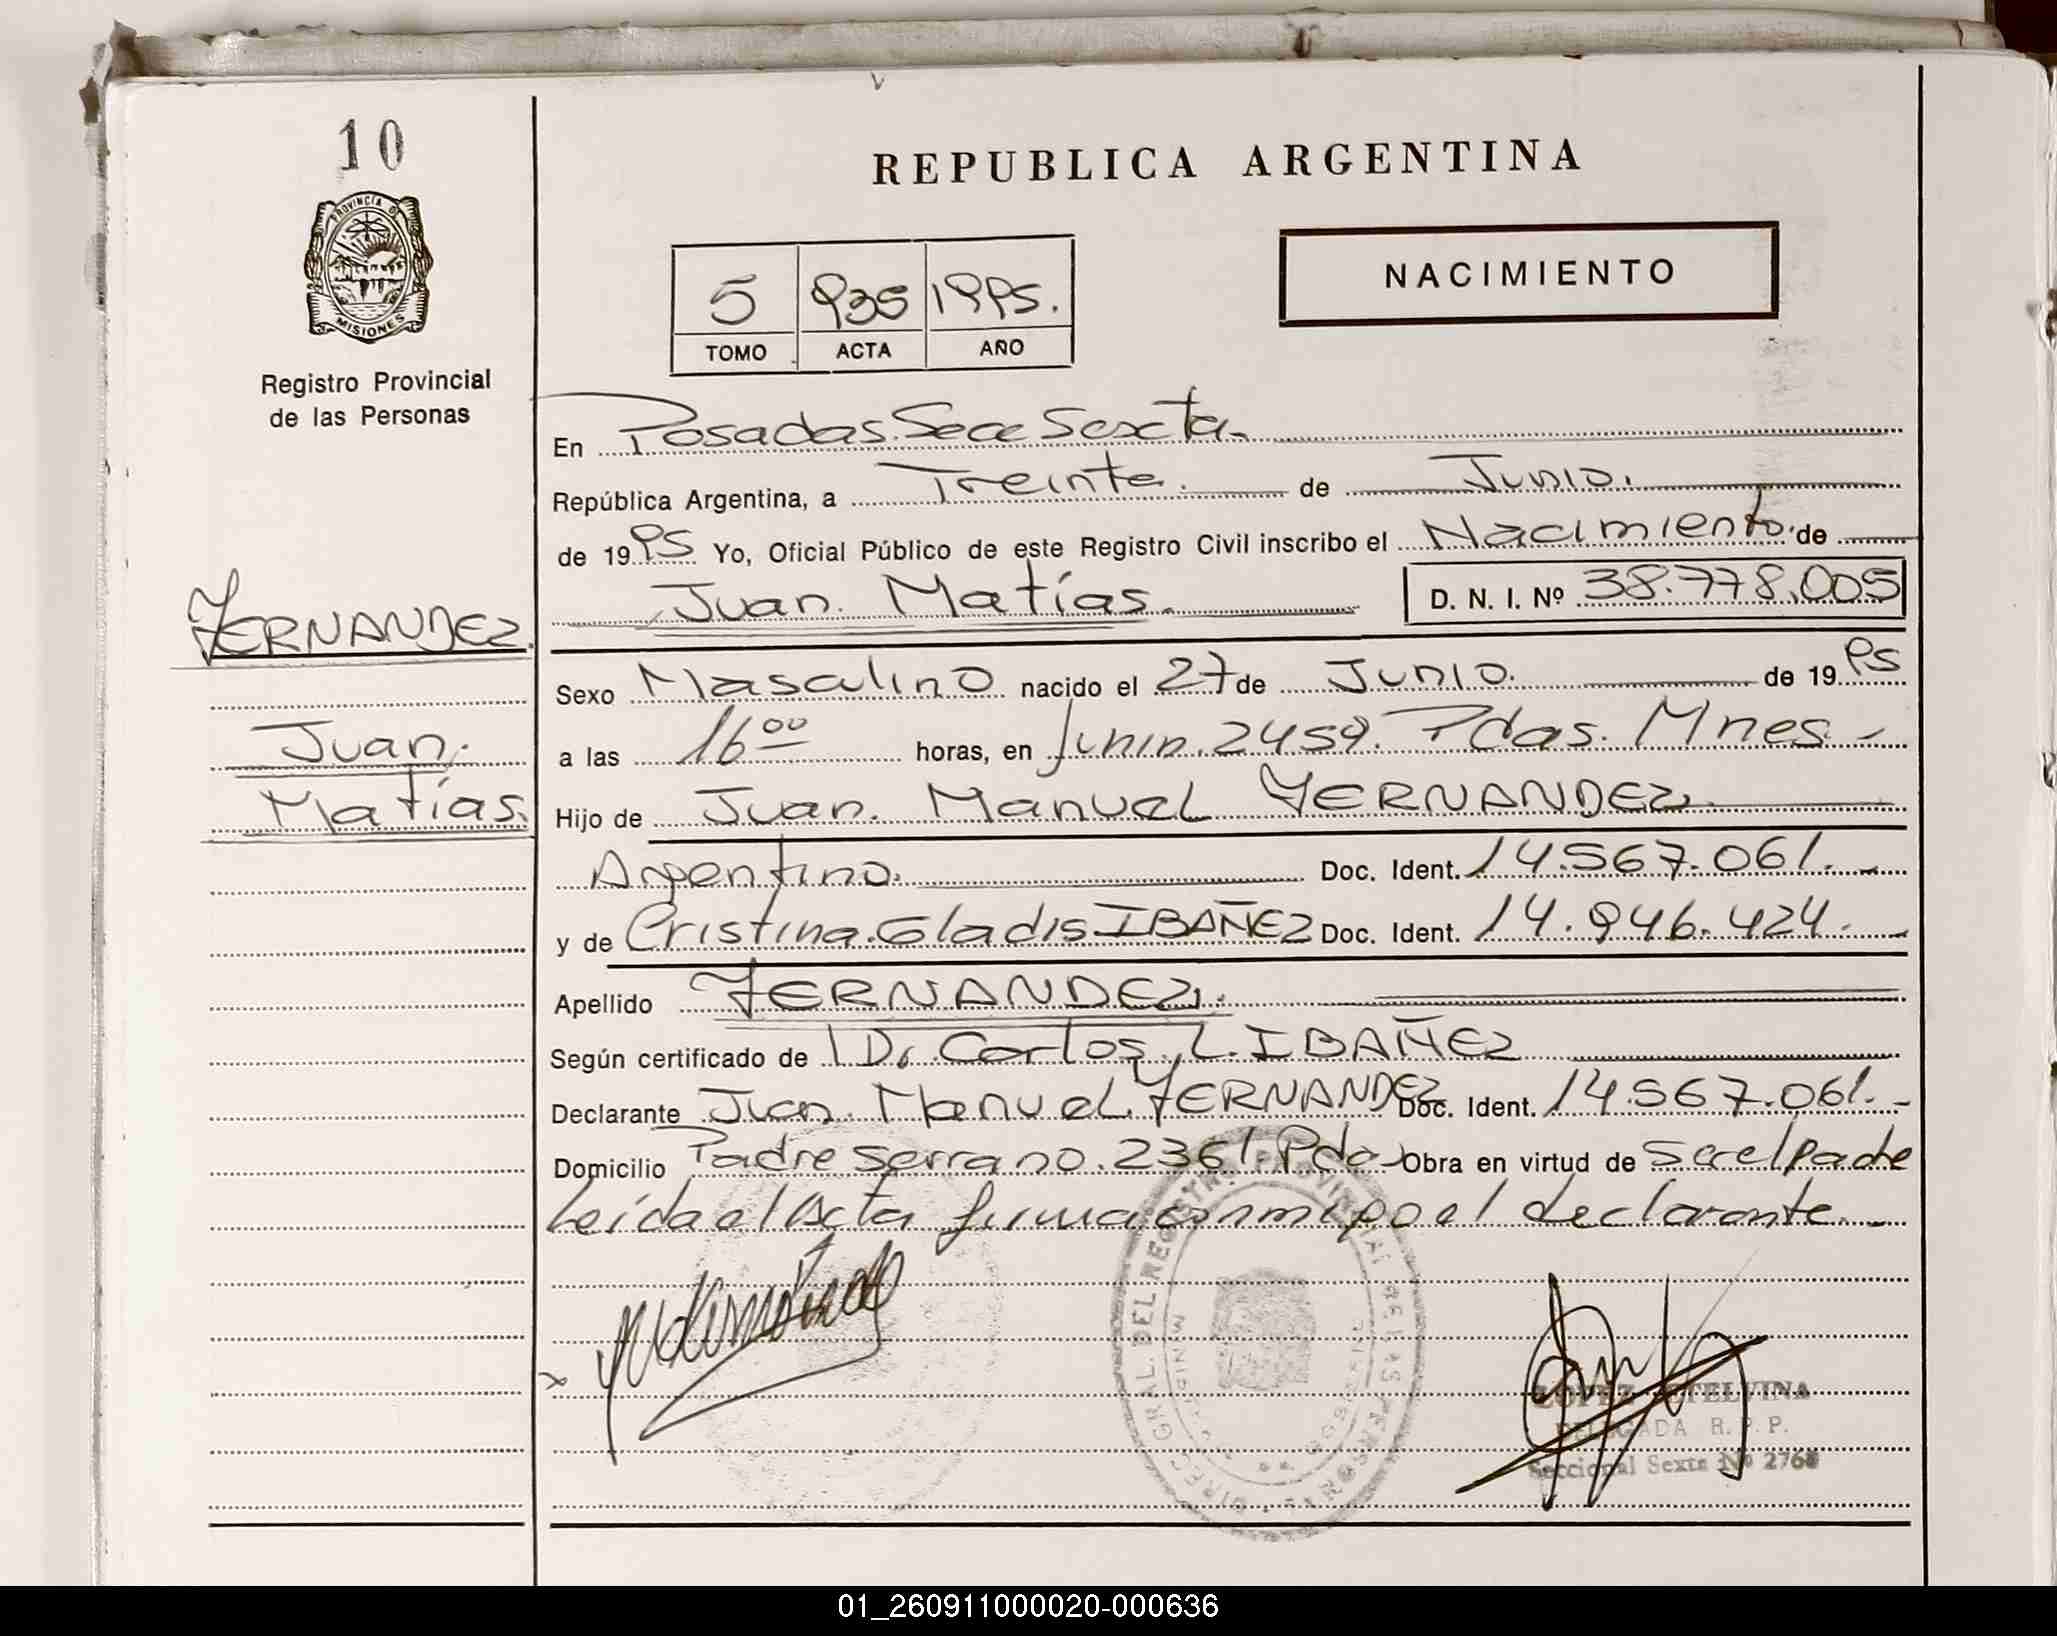 10
REPUBLICA ARGENTINA
PROVINCIA DE
MISIONES
Registro Provincial
de las Personas
NACIMIENTO
5 935 1995.
TOMO ACTA AÑO
En Posadas. Secc Sexta.
República Argentina, a Treinta. de Junio.
de 1995 Yo, Oficial Público de este Registro Civil inscribo el Nacimiento. de
Juan. Matías. D. N. I. Nº 38.778.005
FERNANDEZ.
Juan.
Matías.
Sexo Masculino nacido el 27 de Junio. de 1995
a las 16 00 horas, en Junin. 2459. Pdas. Mnes.-
Hijo de Juan. Manuel FERNANDEZ.
Argentino. Doc. Ident. 14.567.061.-
y de Cristina. Gladis IBAÑEZ Doc. Ident. 14.946.424.-
Apellido FERNANDEZ.
Según certificado de Dr. Carlos. L. IBAÑEZ
Declarante Juan. Manuel. FERNANDEZ Doc. Ident. 14.567.061.-
Domicilio Padre Serrano. 2361 Pdas Obra en virtud de Ser el padre
Leída el Acta firma conmigo el declarante.-
DIREC. GRAL. DEL REGISTRO PROVINCIAL DE LAS PERSONAS
LOPEZ ETELVINA
DELEGADA R. P. P.
Seccional Sexta Nº 2768
01_260911000020-000636